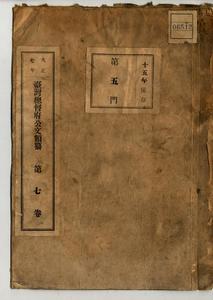 大正七年
臺灣總督府公文類纂 第七卷
十五年保存
第五門
06517